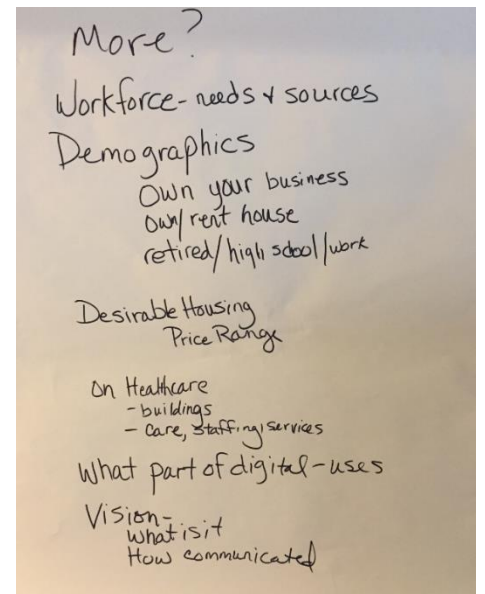 More?
Workforce - needs & sources
Demographics
Own your business
own/rent house
retired/high school/work
Desirable Housing
Price Range
On Healthcare
- buildings
- care, staffing, services
What part of digital - uses
Vision -
What is it
How communicated